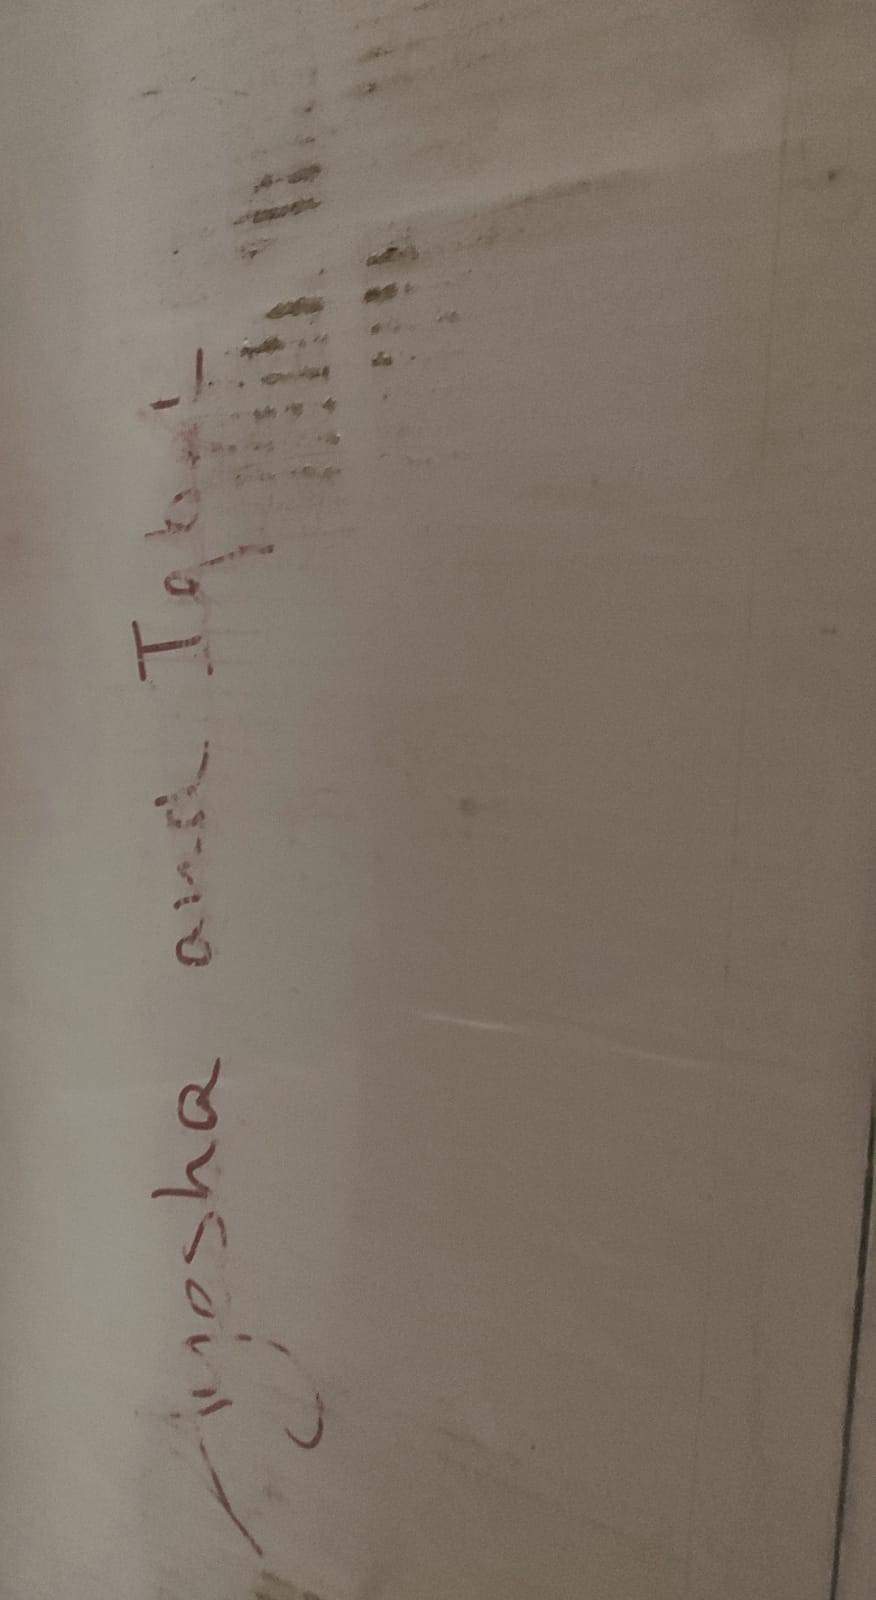 Ayosha and Iqbal